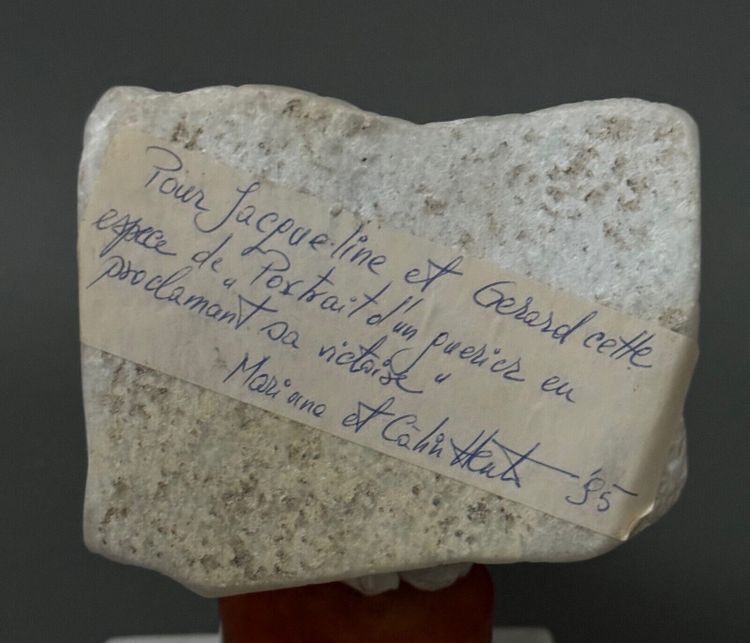 Pour Jacque-line et Gerard cette
espece de "Portrait d'un guerier en
proclamant sa victoire"
Mariana et Călin
'95